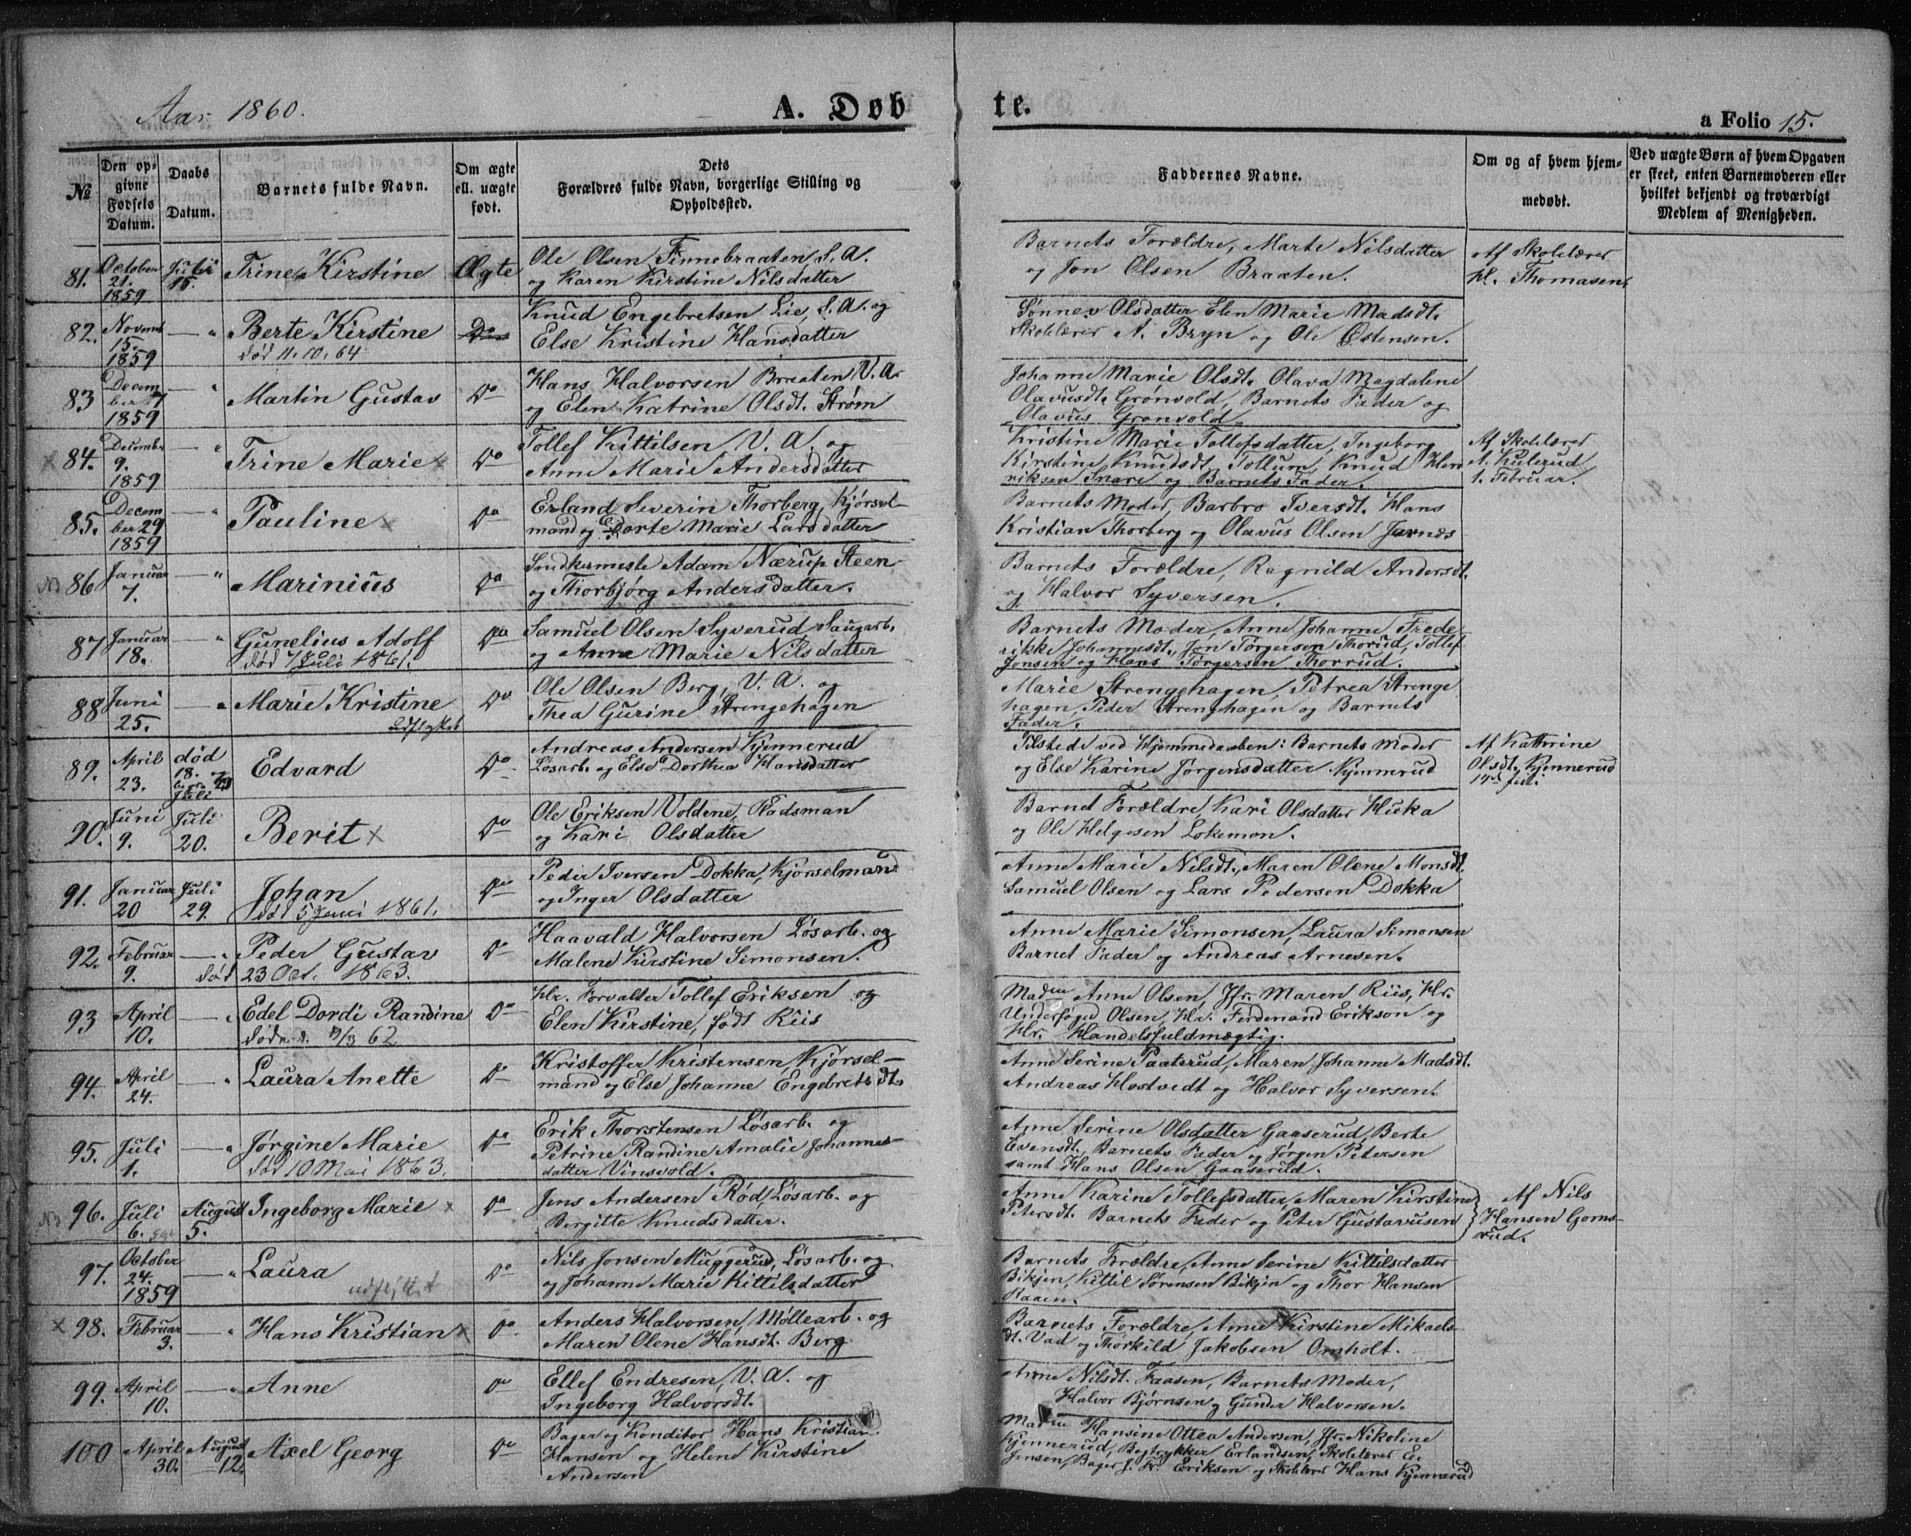 Aar 1860.
A. Døbte.
a Folio 15.
№
Den opgivne Fødsels Datum.
Daabs Datum.
Barnets fulde Navn.
Om ægte ell. uægte født.
Dets Forældres fulde Navn, borgerlige Stilling og Opholdssted.
Faddernes Navne.
Om og af hvem hjemmedøbt.
Ved uægte Børn af hvem Opgaven er skeet, enten Barnemoderen eller hvilket bekjendt og troværdigt Medlem af Menigheden.
81. October 21. 1859 Juli 15. Trine Kirstine Ægte Ole Olsen Finnebraaten S. A. og Karen Kirstine Nilsdatter Barnets Forældre, Marte Nilsdatter og Jon Olsen Braaten. Af Skolelærer H. Thomasen
82. Novemb 15. 1859 — " Berte Kirstine død 11. 10. 64 Do Knud Engebretsen Lie, S. A. og Else Kristine Hansdatter Sønnev Olsdatter Elen Marie Madsdt. Skolelærer A. Bryn og Ole Østensen.
83 December 7 1859 — " Martin Gustav Do Hans Halvorsen Braaten V. A. og Elen Katrine Olsdt. Strøm Johanne Marie Olsdt. Olava Magdalene Olavusdt. Grønvold, Barnets Fader og Olavus Grønvold.
84. Decemb. 9. 1859 — " Trine Marie Do Tollef Kittilsen V. A. og Anne Marie Andersdatter Kristine Marie Tollefsdatter, Ingeborg Kirstine Knudsdt. Tollum, Knud Henriksen Snare og Barnets Fader. Af Skolelærer A. Kulerud 1. Februar.
85. December 29 1859 — " Pauline Do Erland Severin Thorberg, Kjørselmand og Dorte Marie Larsdatter Barnets Moder, Barbro Iversdt. Hans Kristian Thorberg og Olavus Olsen Jarnes
86 Januar 7. — " Marinius Do Adam Nærup Steen og Thorbjørg Andersdatter. Barnets Forældre, Ragnild Andersdt. og Halvor Syversen.
87 Januar 18. — " Gunelius Adolf død Juli 1861. Do Samuel Olsen Syverud Saugarb. og Anne Marie Nilsdatter Barnets Moder, Anne Johanne Frederikke Johannesdt., Jon Torgersen Thorud, Tollef Jonsen og Hans Torgersen Thorrud.
88 Juni 25. — " Marie Kristine Udflyttet Do Ole Olsen Berg, V. A. og Thea Gurine Strengehagen Marie Strengehagen, Petrea Strengehagen, Peder Strengehagen og Barnets Fader.
89. April 23. død 18. Juli Edvard Do Andreas Andersen Kjennerud Løsarb. og Else Dorthea Hansdatter Tilstede ved Hjemmedaaben: Barnets Moder og Else Karine Jørgensdatter Kjennerud Af Kathrine Olsdt. Kjennerud
90. Juni 9. Juli 20. Berit Do Ole Eriksen Voldene, Flodsman og Kari Olsdatter Barnet Forældre, Kari Olsdatter Huka og Ole Helgesen Lokemon.
91. Januar 20 Juli 29. Johan død 5 Juni 1861. Do Peder Iversen Dokka, Kjørselmand og Inger Olsdatter Anne Marie Nilsdt., Maren Olene Monsdt. Samuel Olsen og Lars Pedersen Dokka
92. Februar 9. — " Peder Gustav død 23 Oct. 1863. Do Haavald Halvorsen Løsarb. og Malene Kirstine Simonsen. Anne Marie Simonsen, Laura Simonsen Barnet Fader og Andreas Arnesen.
93 April 10. — " Edel Dordi Randine død /3 62 Do Hr. Forvalter Tollef Eriksen og Elen Kirstine, født Riis Madm Anne Olsen, Jfr. Maren Riis, Hr. Underfoged Olsen, Hr. Ferdinand Erikson og Hr. Handelsfuldmægtig.
94. April 24. — " Laura Anette Do Kristoffer Kristensen Kjørselmand og Else Johanne Engebretsdt. Anne Serine Paaterud, Maren Johanne Madsdt. Andreas Hostvedt og Halvor Syversen.
95. Juli 1. — " Jørgine Marie død 10 Mai 1863. Do Erik Thorstensen Løsarb. og Petrine Randine Amalie Johannesdatter Vinsvold. Anne Serine Olsdatter Gaaserud, Berte Evensdt., Barnets Fader og Jørgen Petersen samt Hans Olsen Gaaserud.
96. Juli 6. August 5. Ingeborg Marie Do Jens Andersen Rød, Løsarb. og Bergitte Knudsdatter. Anne Karine Tollefsdatter, Maren Kirstine Petersdt. Barnets Fader og Peter Gustavusen Af Nils Hansen Gomsrud.
97. October 24. 1859 — " Laura Do Nils Jonsen Muggerud, Løsarb. og og Johanne Marie Kittilsdatter Barnets Forældre, Anne Serine Kittilsdatter Bikjen, Kittil Sørensen Bikjen og Thor Hansen Raaen.
98. Februar 3. — " Hans Kristian Do Anders Halvorsen, Møllearb. og Maren Olene Hansdt. Berg Barnets Forældre, Anne Kirstine Mikaelsdt. Vad og Thorkild Jakobsen Omholt.
99. April 10. — " Anne Do Ellef Endresen, V. A. og Ingeborg Halvorsdt. Anne Nilsdt. Faasen, Barnets Moder, Halvor Bjørnsen og Gunder Halvorsen.
100 April 30. August 12. Axel Georg Do Bager og Konditor Hans Kristian Hansen og Helene Kirstine Andersen Madm Hansine Ottea Andersen, Jfr. Nikoline Kjennerud, Bogtrykker Erlandsen, Skolelærer E. Jensen, Bager J. Fr. Eriksen og Skolelærer Hans Kjennerud